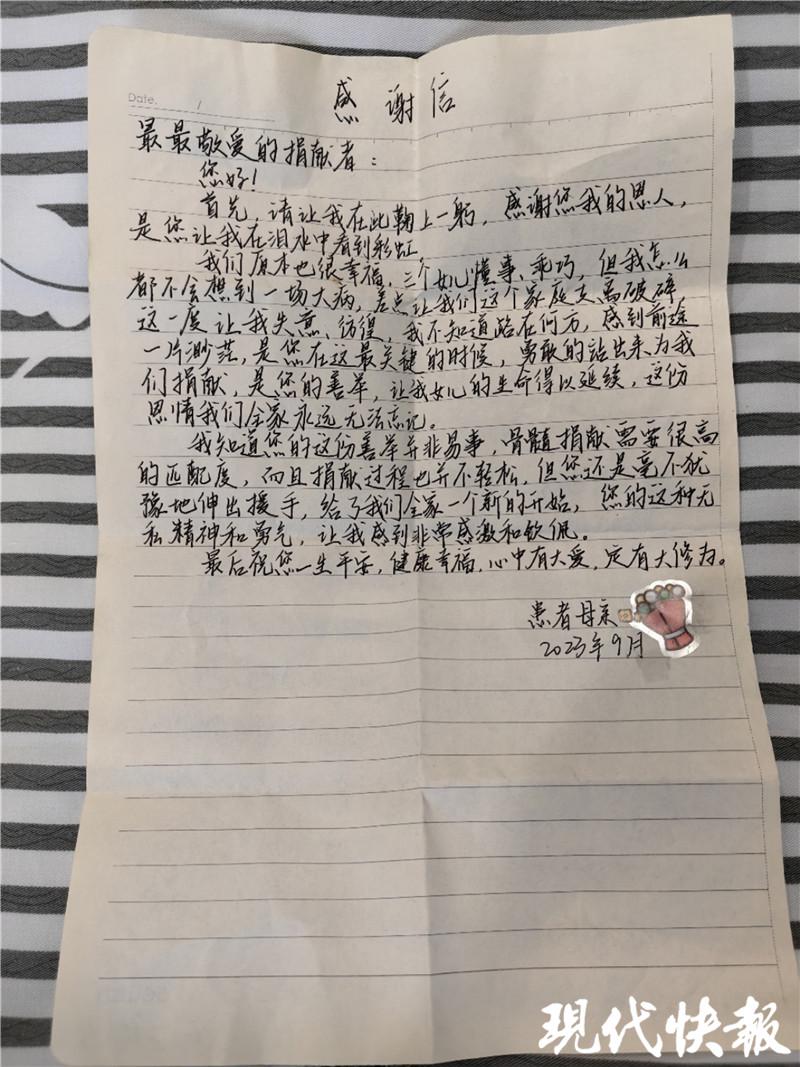 Date. /
感谢信
最最敬爱的捐献者：
您好！
首先，请让我在此鞠上一躬，感谢您我的恩人，
是您让我在泪水中看到彩虹
我们原本也很幸福，三个女儿懂事、乖巧，但我怎么
都不会想到一场大病，差点让我们这个家庭支离破碎
这一度让我失意、彷徨，我不知道路在何方，感到前途
一片渺茫，是您在这最关键的时候，勇敢的站出来为我
们捐献，是您的善举，让我女儿的生命得以延续，这份
恩情我们全家永远无法忘记。
我知道您的这份善举并非易事，骨髓捐献需要很高
的匹配度，而且捐献过程也并不轻松，但您还是毫不犹
豫地伸出援手，给了我们全家一个新的开始，您的这种无
私精神和勇气，让我感到非常感激和钦佩。
最后祝您一生平安，健康幸福，心中有大爱，定有大修为。
患者母亲
2023年9月
现代快報